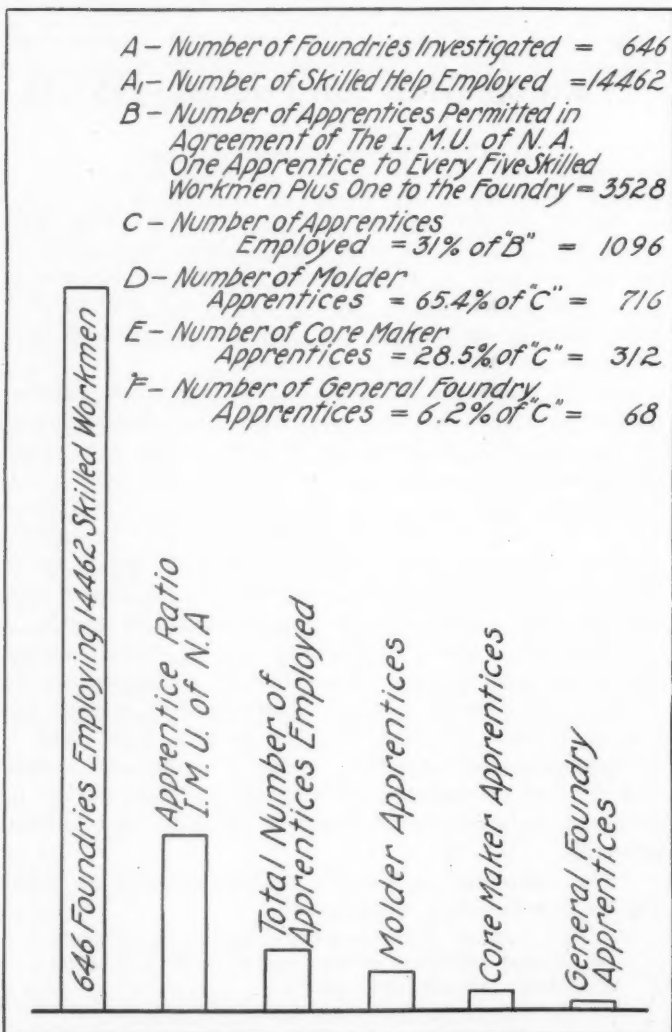 A — Number of Foundries Investigated = 646
A₁ — Number of Skilled Help Employed = 14462
B — Number of Apprentices Permitted in
Agreement of The I. M. U. of N. A.
One Apprentice to Every Five Skilled
Workmen Plus One to the Foundry = 3528
C — Number of Apprentices
Employed = 31% of "B" = 1096
D — Number of Molder
Apprentices = 65.4% of "C" = 716
E — Number of Core Maker
Apprentices = 28.5% of "C" = 312
F — Number of General Foundry
Apprentices = 6.2% of "C" = 68
646 Foundries Employing 14462 Skilled Workmen
Apprentice Ratio
I. M. U. of N. A
Total Number of
Apprentices Employed
Molder Apprentices
Core Maker Apprentices
General Foundry
Apprentices